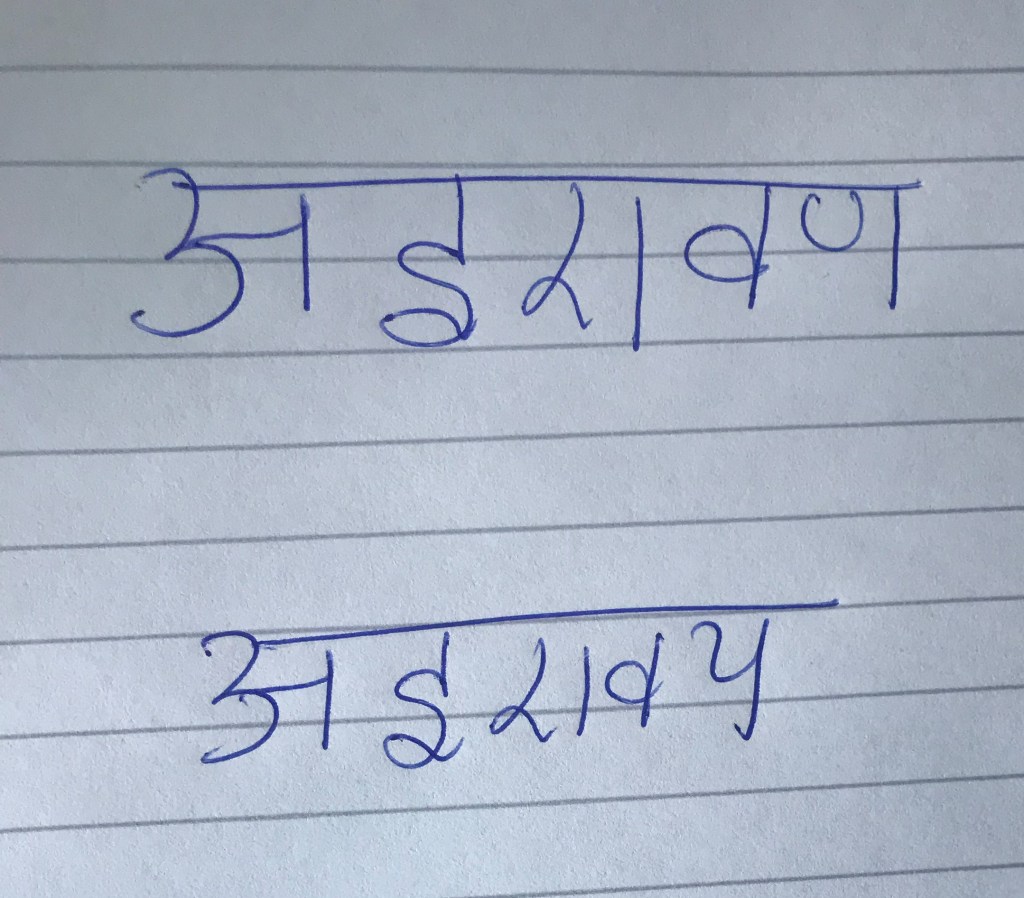 अइरावण
अइरावय